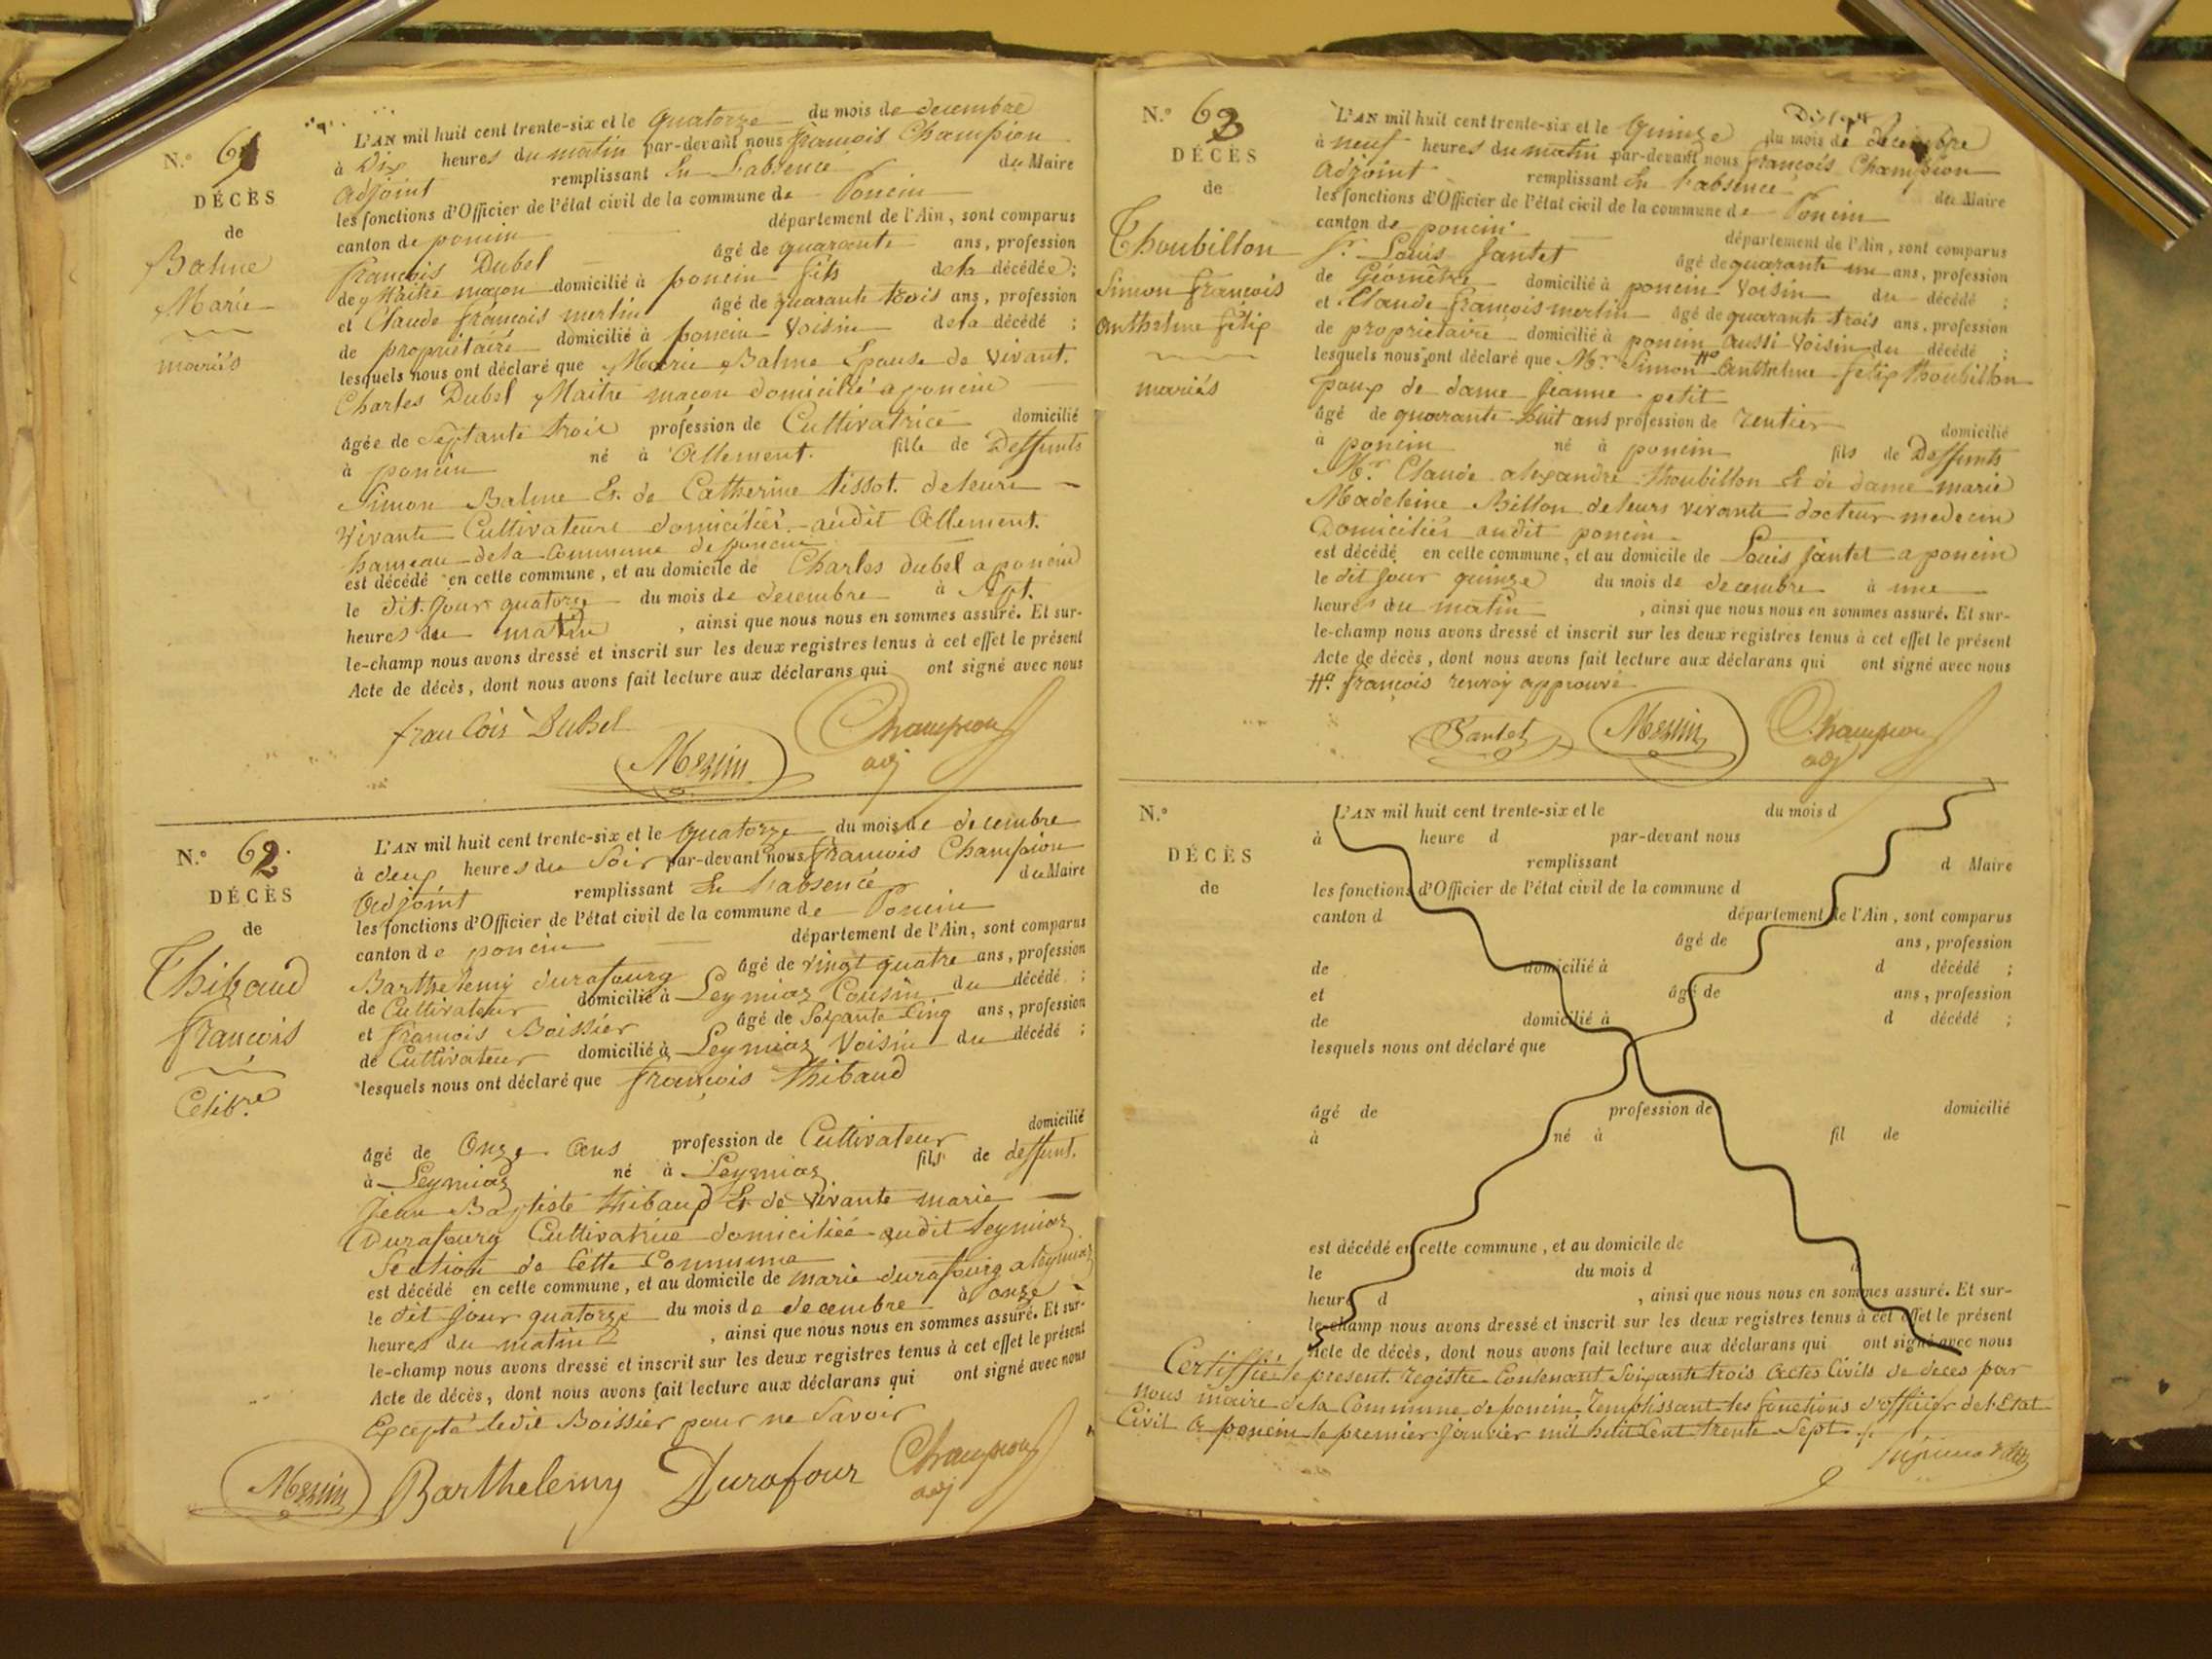 N.° 61
DÉCÈS
de
Balme
Marie
mariés
L'AN mil huit cent trente-six et le quatorze du mois de decembre
à Dix heures du matin par-devant nous françois Champion
adjoint remplissant En L'absence du Maire
les fonctions d'Officier de l'état civil de la commune de Poncin
canton de poncin département de l'Ain, sont comparus
françois Dubel âgé de quarante ans, profession
de Maitre maçon domicilié à poncin fils de la décédée;
et Claude françois merlin âgé de quarante trois ans, profession
de propriétaire domicilié à poncin Voisin de la décédé;
lesquels nous ont déclaré que Marie Balme Epouse de Vivant
Charles Dubel Maitre maçon domicilié a poncin
âgée de Septante trois profession de Cultivatrice domicilié
à poncin né à Allement. fille de Deffunts
Simon Balme Et de Catherine tissot de leurs
Vivants Cultivateurs domiciliés audit Allement.
hameau de la Commune de poncin
est décédé en cette commune, et au domicile de Charles dubel a poncin
le dit jour quatorze du mois de decembre à Sept
heures du matin, ainsi que nous nous en sommes assuré. Et sur-
le-champ nous avons dressé et inscrit sur les deux registres tenus à cet effet le présent
Acte de décès, dont nous avons fait lecture aux déclarans qui ont signé avec nous
françois Dubel
Merlin
Champion
adj
N.° 62
DÉCÈS
de
Thibaud
françois
Célib.re
L'AN mil huit cent trente-six et le quatorze du mois de decembre
à deux heures du Soir par-devant nous françois Champion
adjoint remplissant En l'absence du Maire
les fonctions d'Officier de l'état civil de la commune de Poncin
canton de poncin département de l'Ain, sont comparus
Barthelemy durafourg âgé de vingt quatre ans, profession
de Cultivateur domicilié à Leymiaz Cousin du décédé;
et françois Boissier âgé de Soixante Cinq ans, profession
de Cultivateur domicilié à Leymiaz Voisin du décédé;
lesquels nous ont déclaré que françois thibaud
âgé de Onze ans profession de Cultivateur domicilié
à Leymiaz né à Leymiaz fils de deffunt
Jean Baptiste thibaud Et de Vivante marie
Durafourg Cultivatrice domiciliée audit leymiaz
Section de Cette Commune
est décédé en cette commune, et au domicile de marie durafourg a leymiaz
le dit jour quatorze du mois de decembre à onze
heures du matin, ainsi que nous nous en sommes assuré. Et sur-
le-champ nous avons dressé et inscrit sur les deux registres tenus à cet effet le présent
Acte de décès, dont nous avons fait lecture aux déclarans qui ont signé avec nous
Excepté ledit Boissier pour ne Savoir
Merlin Barthelemy Durafour Champion
adj
N.° 63
DÉCÈS
de
Thoubillon
Simon françois
anthelme félix
mariés
L'AN mil huit cent trente-six et le Quinze du mois de decembre
à neuf heures du matin par-devant nous françois Champion
adjoint remplissant En l'absence du Maire
les fonctions d'Officier de l'état civil de la commune de Poncin
canton de poncin département de l'Ain, sont comparus
S.r Louis Jantet âgé de quarante un ans, profession
de Géomètre domicilié à poncin Voisin du décédé;
et Claude françois merlin âgé de quarante trois ans, profession
de propriétaire domicilié à poncin aussi Voisin du décédé;
lesquels nous ont déclaré que M.r Simon # Anthelme félix thoubillon
Epoux de dame Jeanne petit
âgé de quarante huit ans profession de rentier domicilié
à poncin né à poncin fils de Deffunts
M.r Claude alexandre thoubillon Et de dame marie
Madeleine Billon de leurs vivants docteur medecin
Domiciliés audit poncin
est décédé en cette commune, et au domicile de Louis Jantet a poncin
le dit jour quinze du mois de decembre à une
heures du matin, ainsi que nous nous en sommes assuré. Et sur-
le-champ nous avons dressé et inscrit sur les deux registres tenus à cet effet le présent
Acte de décès, dont nous avons fait lecture aux déclarans qui ont signé avec nous
#. françois renvoi approuvé
Jantet Merlin Champion
adj
N.°
DÉCÈS
de
L'AN mil huit cent trente-six et le du mois d
à heure d par-devant nous
remplissant d Maire
les fonctions d'Officier de l'état civil de la commune d
canton d département de l'Ain, sont comparus
âgé de ans, profession
de domicilié à d décédé;
et âgé de ans, profession
de domicilié à d décédé;
lesquels nous ont déclaré que
âgé de profession de domicilié
à né à fil de
est décédé en cette commune, et au domicile de
le du mois d à
heure d, ainsi que nous nous en sommes assuré. Et sur-
le-champ nous avons dressé et inscrit sur les deux registres tenus à cet effet le présent
Acte de décès, dont nous avons fait lecture aux déclarans qui ont signé avec nous
Certiffié le present registre Contenant Soixante trois Actes Civils de deces par
nous maire de la Commune de poncin remplissant les fonctions d'officier de l'Etat
Civil A poncin le premier Janvier mil huit Cent trente Sept